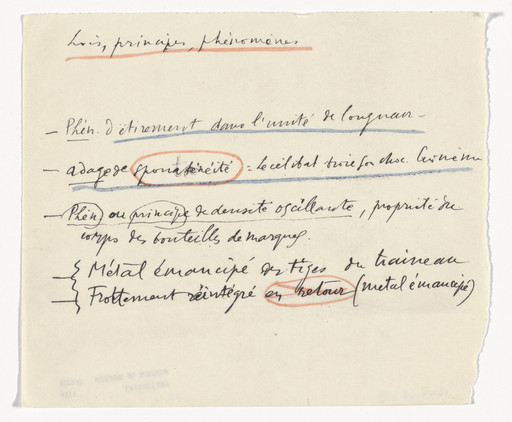 Lois, principes, phénomènes
— Phén. d'étirement dans l'unité de longueur —
— adage de spontanéité = le célibataire
— Phén. ou principe de densité oscillante, propriété du
corps des bouteilles de marques.
Métal émancipé des tiges du traineau
Frottement réintégré en retour (métal émancipé)